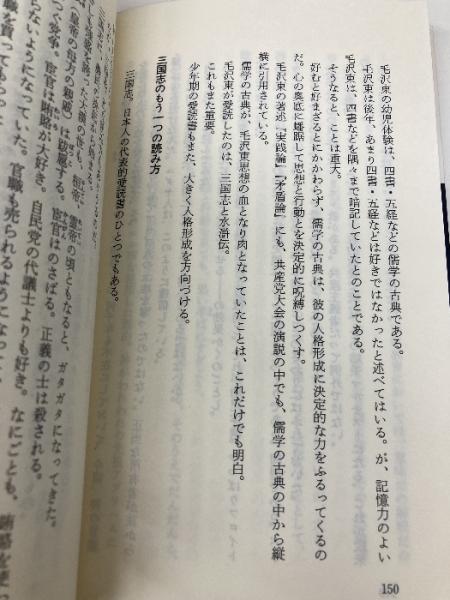 毛沢東の幼児体験は、四書・五経などの儒学の古典である。
毛沢東は後年、あまり四書・五経などは好きではなかったと述べてはいる。が、記憶力のよい
毛沢東は、四書などを隅々まで暗記していたとのことである。
そうなると、ことは重大。
好むと好まざるとにかかわらず、儒学の古典は、彼の人格形成に決定的な力をふるってくるの
だ。心の奥底に蟠踞して思想と行動とを決定的に呪縛しつくす。
毛沢東の著述「実践論」「矛盾論」にも、共産党大会の演説の中でも、儒学の古典の中から縦
横に引用されている。
儒学の古典が、毛沢東思想の血となり肉となっていたことは、これだけでも明白。
毛沢東が愛読したのは、三国志と水滸伝。
これもまた重要。
少年期の愛読書もまた、大きく人格形成を方向づける。
三国志のもう一つの読み方
三国志。日本人の代表的愛読書のひとつでもある。
大漢の世も、桓帝、霊帝の頃ともなると、ガタガタになってきた。
皇帝の母子の親戚)は跋扈する。宦官はのさばる。正義の士は殺される。
つぐ党争。宦官は賄賂が大好き。自民党の代議士よりも好き。なにごとも、賄賂を使っ
らないようになっていた。官職も売られるようになって
官職を買ってら
150